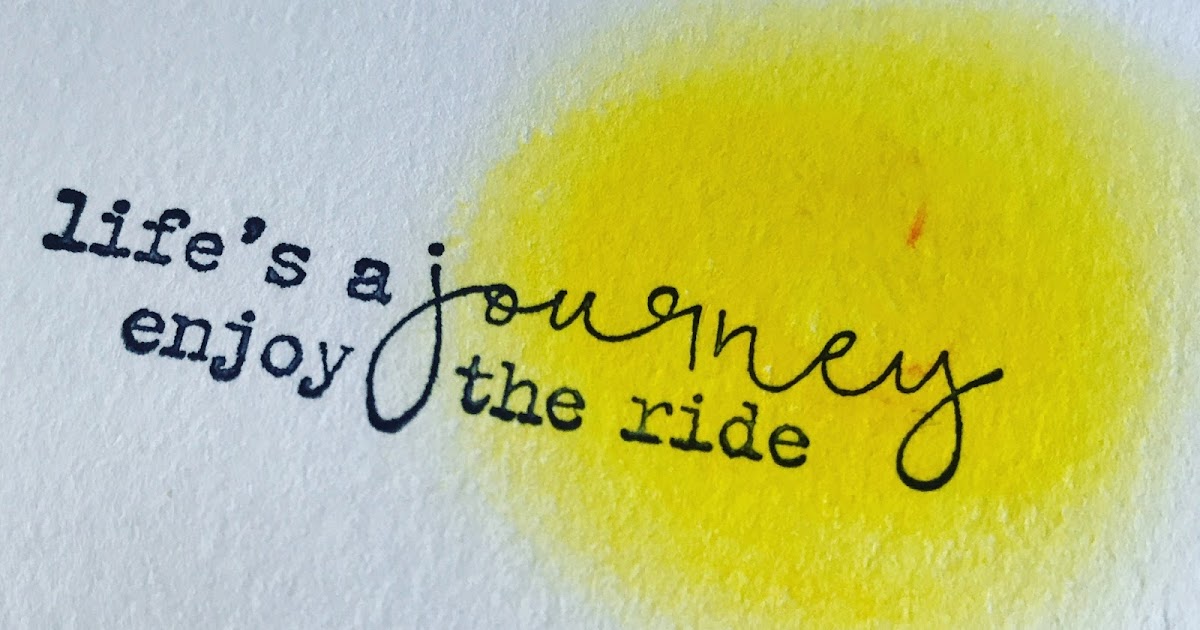 life's a journey
enjoy the ride